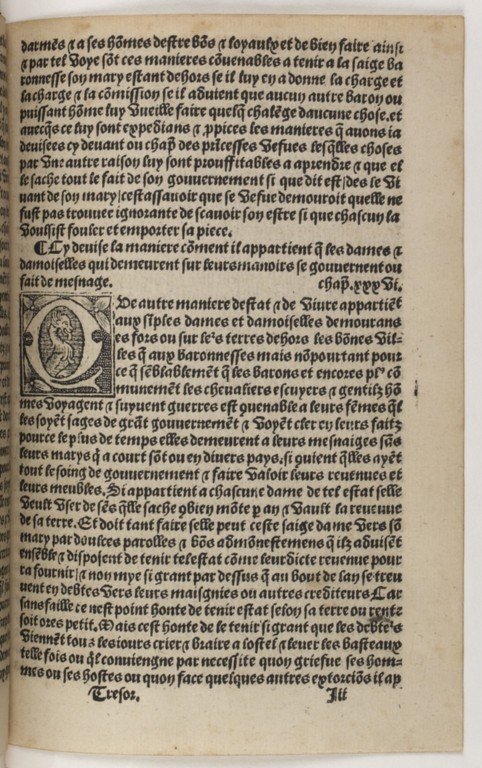 darmẽs ⁊ a ses hõmes destre bõs ⁊ loyaulx et de bien faire ainsi
⁊ par tel Voye sõt ces manieres cõuenables a tenir a la saige ba
ronnesse son mary estant dehors se il luy en a donne la charge et
la charge ⁊ la cõmission se il aduient que aucun autre baron ou
puissant hõme luy Vueille faire quelq̃ chalẽge daucune chose. et
auecq̃s ce luy sont expedians ⁊ ꝓpices les manieres q̃ auons ia
deuisees cy deuant ou chap̃ des prĩcesses Vefues lesq̃lles choses
par Vne autre raison luy sont prouffitables a aprendre ⁊ que el
le sache tout le fait de son gouuernement si que dit est/des le Vi
uant de son mary/cestassauoir que se Vefue demouroit quelle ne
fust pas trouuer ignorante de scauoir son estre si que chascun la
Voulsist fouler et emporter sa piece.
¶ Cy deuise la maniere cõment il appartient q̃ les dames ⁊
damoiselles qui demeurent sur leurs manoirs se gouuernent ou
fait de mesnage. chap̃. xxxvi.
Ove autre maniere destat ⁊ de Viure appartiẽt
aux sĩples dames et damoiselles demourans
es fors ou sur le's terres dehors les bõnes Vil-
les q̃ aux baronnesses mais nõpourtant pour
ce q̃ sẽblablemẽt q̃ les barons et encores plꝰ cõ
munemẽt les cheualiers escuyers ⁊ gentilz hõ
mes Voyagent ⁊ suyuent guerres est ꝯuenable a leurs fẽmes q̃l
les soyẽt sages de grãt gouuernemẽt ⁊ Voyẽt cler en leurs faitz
pource le plus de temps elles demeurent a leurs mesnaiges sãs
leurs marys q̃ a court sõt ou en diuers pays. si ꝯuient q̃lles ayẽt
tout le soing de gouuernement ⁊ faire Valoir leurs reuenues et
leurs meubles. Si appartient a chascune dame de tel estat selle
Veult Vser de sẽs q̃lle sache ꝯbien mõte ꝑ an ⁊ Vault la reuenue
de sa terre. Et doit tant faire selle peut ceste saige dame Vers sõ
mary par doulces parolles ⁊ bõs admõnestemens q̃ ilz aduisẽt
ensẽble ⁊ disposent de tenir tel estat cõme leurdicte reuenue pour
ra fournir/⁊ non mye si grant par dessus q̃ au bout de lan se treu
uent en debtes Vers leurs maisgnies ou autres crediteurs Car
sans faille ce nest point honte de tenir estat selon sa terre ou rente
soit ores petit. Mais cest honte de le tenir si grant que les debte's
Viennẽt tous les iours crier ⁊ braire a lostel ⁊ leuer les basteaux
telle fois ou q̃l conuiengne par necessite quon griefue ses hom-
mes ou ses hostes ou quon face quelques autres extorciõs il ap
Tresor. I ii